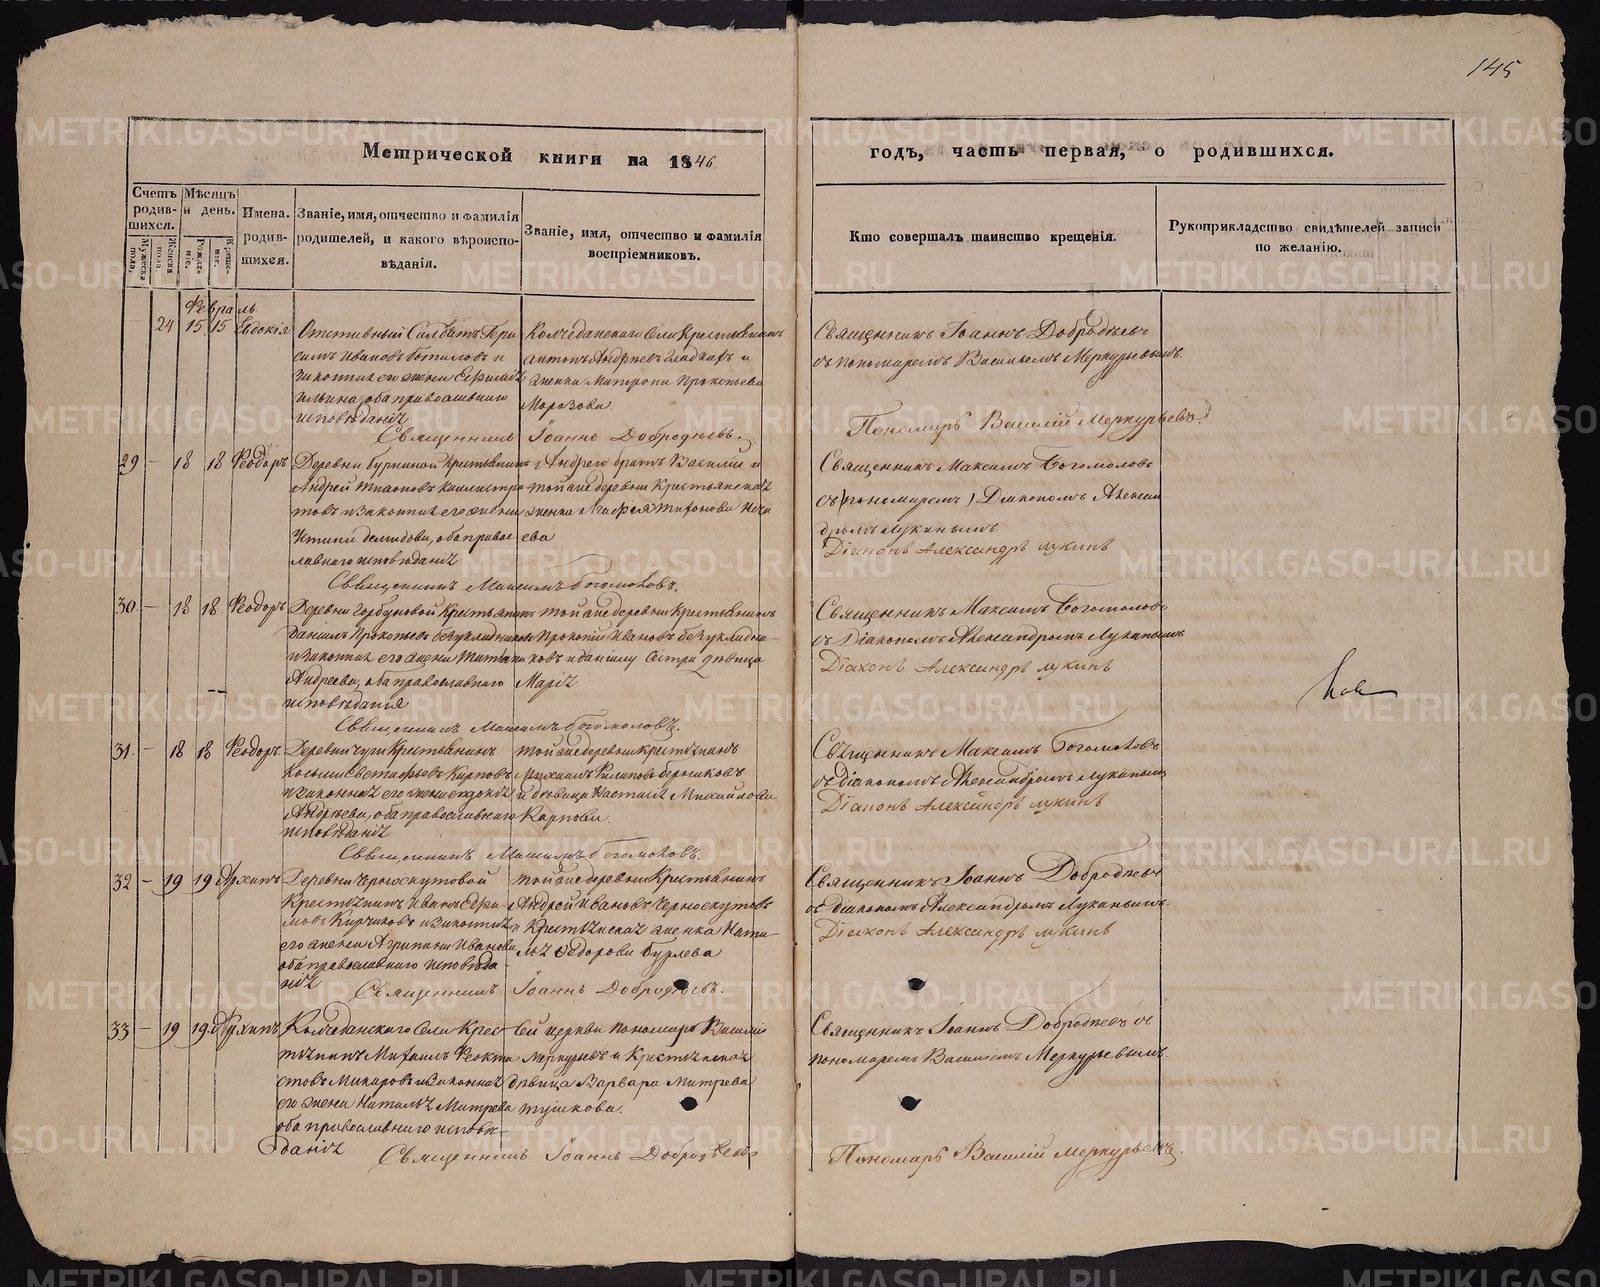 145
Метрической книги на 1846
годъ, часть первая, о родившихся.
Счетъ родив-шихся.
Мужеска пола,
Женска пола.
Мѣсяцъ и день.
Рожде-ніе.
Креще-ніе.
Имена. родив-шихся.
Званіе, имя, отчество и фамилія родителей, и какого вѣроиспо-вѣданія.
Званіе, имя, отчество и фамилія воспріемниковъ.
Кто совершалъ таинство крещенія.
Рукоприкладство свидѣтелей записи по желанію.
Февраль
24 15 15 Евдокія
Отставный Салдатъ Гера
симъ Ивановъ и
законная его жена
Ильина, оба православнаго
исповѣданія
Колчеданскаго Села Крестьянинъ
Антонъ Андреевъ и
женка Матрона Прокопьева
Морозова.
Священникъ Іоаннъ Добродѣевъ
съ пономаремъ Василіемъ Меркурьевымъ.
Священникъ Іоаннъ Добродѣевъ.
Пономарь Василій Меркурьевъ.
29 – 18 18 Феодоръ
Деревни Крестьянинъ
Андрей
и законная его жена
Демидова, оба право
славнаго исповѣданія
Андрея братъ Василій и
той же деревни Крестьянская
женка Агафья Тифонова
ева
Священникъ Максимъ Богомоловъ
съ (пономаремъ) Діакономъ Алексан
дромъ Лукинымъ
Діаконъ Александръ Лукинъ
Священникъ Максимъ Богомоловъ.
30 – 18 18 Феодоръ
Деревни Горбуновой Крестьянинъ
Даніилъ Прокопьевъ Безукладниковъ
и законная его жена
Андреева, оба православнаго
исповѣданія
той же деревни Крестьянинъ
Прокопій Ивановъ Безукладни
ковъ и Даніилу сестра дѣвица
Марія
Священникъ Максимъ Богомоловъ
съ Діакономъ Александромъ Лукинымъ
Діаконъ Александръ Лукинъ
Священникъ Максимъ Богомоловъ.
31 – 18 18 Феодоръ
Деревни Крестьянинъ
Карповъ
и законная его жена Евдокія
Андреева, оба православнаго
исповѣданія
той же деревни Крестьянинъ
Михаилъ Филиповъ
и дѣвица Настасія Михайлова
Карпова.
Священникъ Максимъ Богомоловъ
съ Діакономъ Александромъ Лукинымъ
Діаконъ Александръ Лукинъ
Священникъ Максимъ Богомоловъ.
32 – 19 19 Архипъ
Деревни Черноскутовой
Крестьянинъ Иванъ
и законная
его жена Агрипина Иванова
оба православнаго исповѣда-
нія
той же деревни Крестьянинъ
Андрей Ивановъ Черноскутовъ
и Крестьянская женка Ната-
лья Федорова Бурлева
Священникъ Іоаннъ Добродѣевъ
съ Діакономъ Александромъ Лукинымъ.
Діаконъ Александръ Лукинъ
Священникъ Іоаннъ Добродѣевъ.
33 – 19 19 Архипъ
Колчеданскаго Села Крес-
тьянинъ Михаилъ Феокти
стовъ Макаровъ и законная
его жена Наталья Митрева
оба православнаго исповѣ-
данія
Сей церкви пономарь Василій
Меркурьевъ и Крестьянская
дѣвица Варвара Митрева
Тушкова.
Священникъ Іоаннъ Добродѣевъ съ
пономаремъ Василіемъ Меркурьевымъ.
Священникъ Іоаннъ Добродѣевъ
Пономарь Василій Меркурьевъ.
METRIKI.GASO-URAL.RU